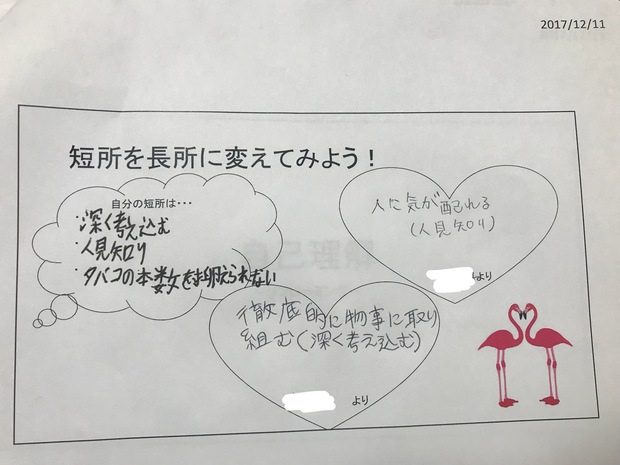 2017/12/11
短所を長所に変えてみよう！
自分の短所は・・・
・深く考え込む
・人見知り
・タバコの本数を抑えられない
人に気が配れる
(人見知り)
より
徹底的に物事に取り
組む(深く考え込む)
より
自己理解